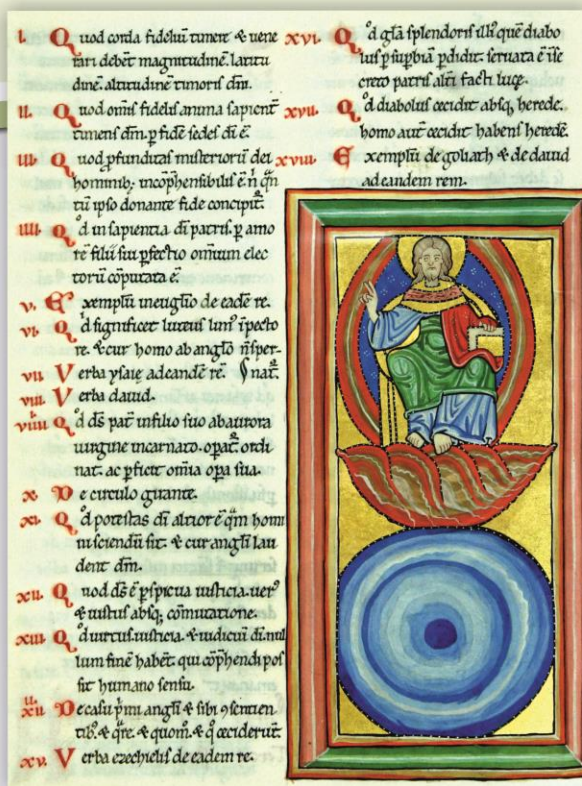 I. Quod corda fideliū timere & uene
rari debēt magnitudinē. latitu
dinē. altitudinē timoris dm̄.
II. Quod omīs fidelis anima sapient̄
timens dm̄. p fidē sedes dī ē.
III. Quod pfunditas misteriorū dei
hominib; incōphensibilis ē n̄ q̄n
tū ipso donante fide concipit̄.
IIII. Qd in sapientia dī patris. p amo
rē filii sui pfectio omnium elec
torū cōputata ē.
v. Exemplū in euḡlio de eadē re.
vi. Qd significet luteus lim̄ i pecto
re. & cur homo ab anglō n̄ sper-
nat̄.
vii. Verba ysaię ad eandē rē.
viii. Verba dauid.
viiii. Qd ds̄ pat̄ in filio suo ab aurora
uirgine incarnato. opat̄. ordi
nat. ac pficit omia opa sua.
x. De circulo girante.
xi. Qd potestas dī altior ē q̄m homi
ni sciendū sit. & cur angli lau
dent dm̄.
xii. Quod ds̄ ē pspicua iusticia. uer⁹
& iustus absq; cōmutatione.
xiii. Qd uirtus. iusticia. & iudiciū dī nul
lum finē habēt qui cōphendi pos
sit humano sensu.
xiiii. De casu p̄mi angli & sibi ɔsentien
tib⁹. & q̄re. & quom̄. & q̊ ceciderūt.
xv. Verba ezechielis de eadem re.
xvi. Qd glā splendoris illi⁹ quē diabo
lus p supbiā pdidit. seruata ē ī se
creto patris alii facti luci.
xvii. Qd diabolus cecidit absq; herede.
homo aut̄ cecidit habens heredē.
xviii. Exemplū de goliath & de dauid
ad eandem rem.